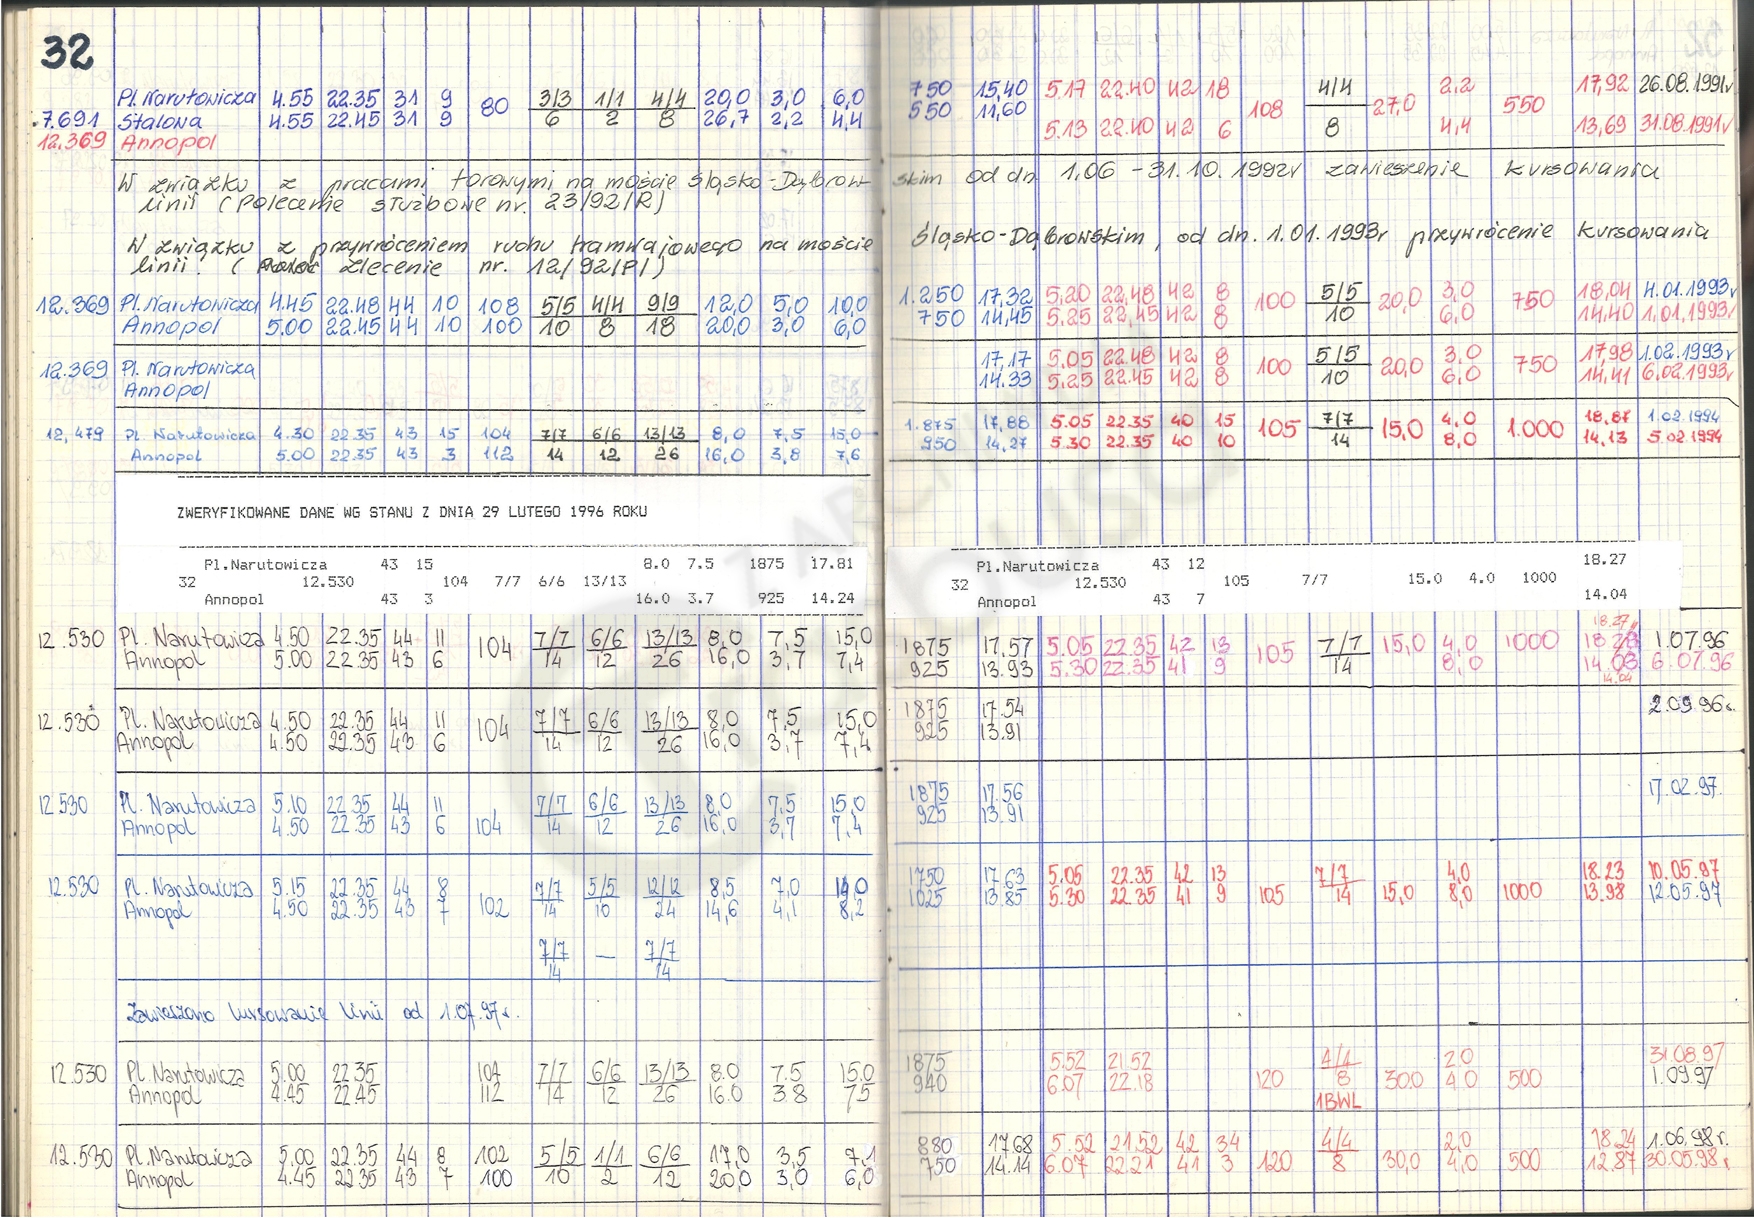 32
Pl. Narutowicza 4.55 22.35 31 9 80 3/3 1/1 4/4 20,0 3,0 6,0 750 15,40 5.17 22.40 42 18 108 4/4 27,0 2,2 550 17,92 26.08.1991r
.7.691 Stalowa 4.55 22.45 31 9 6 2 8 26,7 2,2 4,4 550 11,60 5.13 22.40 42 6 8 4,4 13,69 31.08.1991r
12.369 Annopol
W związku z pracami torowymi na moście Śląsko-Dąbrowskim od dn. 1.06 - 31.10.1992r zawieszenie kursowania
linii (Polecenie służbowe nr. 23/92/R)
W związku z przywróceniem ruchu tramwajowego na moście Śląsko-Dąbrowskim, od dn. 1.01.1993r przywrócenie kursowania
linii. ( Zlecenie nr. 12/92/P/)
12.369 Pl. Narutowicza 4.45 22.48 44 10 108 5/5 4/4 9/9 12,0 5,0 10,0 1.250 17,32 5.20 22.48 42 8 100 5/5 20,0 3,0 750 18,04 4.01.1993r
Annopol 5.00 22.45 44 10 100 10 8 18 20,0 3,0 6,0 750 14,45 5.25 22,45 42 8 10 6,0 14,40 1.01.1993r
12.369 Pl. Narutowicza 17,17 5.05 22.48 42 8 100 5/5 20,0 3,0 750 17,98 1.02.1993r
Annopol 14.33 5.25 22.45 42 8 10 6,0 14,41 6.02.1993r
12,479 Pl. Narutowicza 4.30 22.35 43 15 104 7/7 6/6 13/13 8,0 7,5 15,0 1.875 17,88 5.05 22.35 40 15 105 7/7 15,0 4,0 1.000 18,87 1.02.1994
Annopol 5.00 22.35 43 3 112 14 12 26 16,0 3,8 7,6 950 14,27 5.30 22.35 40 10 14 8,0 14,13 5.02.1994
ZWERYFIKOWANE DANE WG STANU Z DNIA 29 LUTEGO 1996 ROKU
Pl.Narutowicza 43 15 8.0 7.5 1875 17.81 Pl.Narutowicza 43 12 18.27
32 12.530 104 7/7 6/6 13/13 32 12.530 105 7/7 15.0 4.0 1000
Annopol 43 3 16.0 3.7 925 14.24 Annopol 43 7 14.04
18.27
12.530 Pl. Narutowicza 4.50 22.35 44 11 104 7/7 6/6 13/13 8,0 7,5 15,0 1875 17.57 5.05 22.35 42 13 105 7/7 15,0 4,0 1000 18.28 1.07.96
Annopol 5.00 22.35 43 6 14 12 26 16,0 3,7 7,4 925 13.93 5.30 22.35 41 9 14 8,0 14.03 6.07.96
14.04
12.530 Pl. Narutowicza 4.50 22.35 44 11 104 7/7 6/6 13/13 8,0 7,5 15,0 1875 17.54 2.09.96r.
Annopol 4.50 22.35 43 6 14 12 26 16,0 3,7 7,4 925 13.91
12.530 Pl. Narutowicza 5.10 22.35 44 11 7/7 6/6 13/13 8,0 7,5 15,0 1875 17.56 17.02.97.
Annopol 4.50 22.35 43 6 104 14 12 26 16,0 3,7 7,4 925 13.91
12.530 Pl. Narutowicza 5.15 22.35 44 8 7/7 5/5 12/12 8,5 7,0 14,0 1750 17.63 5.05 22.35 42 13 7/7 4,0 18.23 10.05.97
Annopol 4.50 22.35 43 7 102 14 10 24 14,6 4,1 8,2 1025 13.85 5.30 22.35 41 9 105 14 15,0 8,0 1000 13.98 12.05.97
7/7 — 7/7
14 14
Zawieszono kursowanie linii od 1.07.97r.
12.530 Pl. Narutowicza 5.00 22.35 104 7/7 6/6 13/13 8.0 7.5 15.0 1875 5.52 21.52 4/4 2.0 31.08.97
Annopol 4.45 22.45 112 14 12 26 16.0 3.8 7.5 940 6.07 22.18 120 8 30.0 4.0 500 1.09.97
1BWL
12.530 Pl. Narutowicza 5.00 22.35 44 8 102 5/5 1/1 6/6 17,0 3,5 7,1 880 17.68 5.52 21.52 42 34 4/4 2,0 18.24 1.06.98r.
Annopol 4.45 22.35 43 7 100 10 2 12 20,0 3,0 6,0 750 14.14 6.07 22.21 41 3 120 8 30,0 4,0 500 12.87 30.05.98r